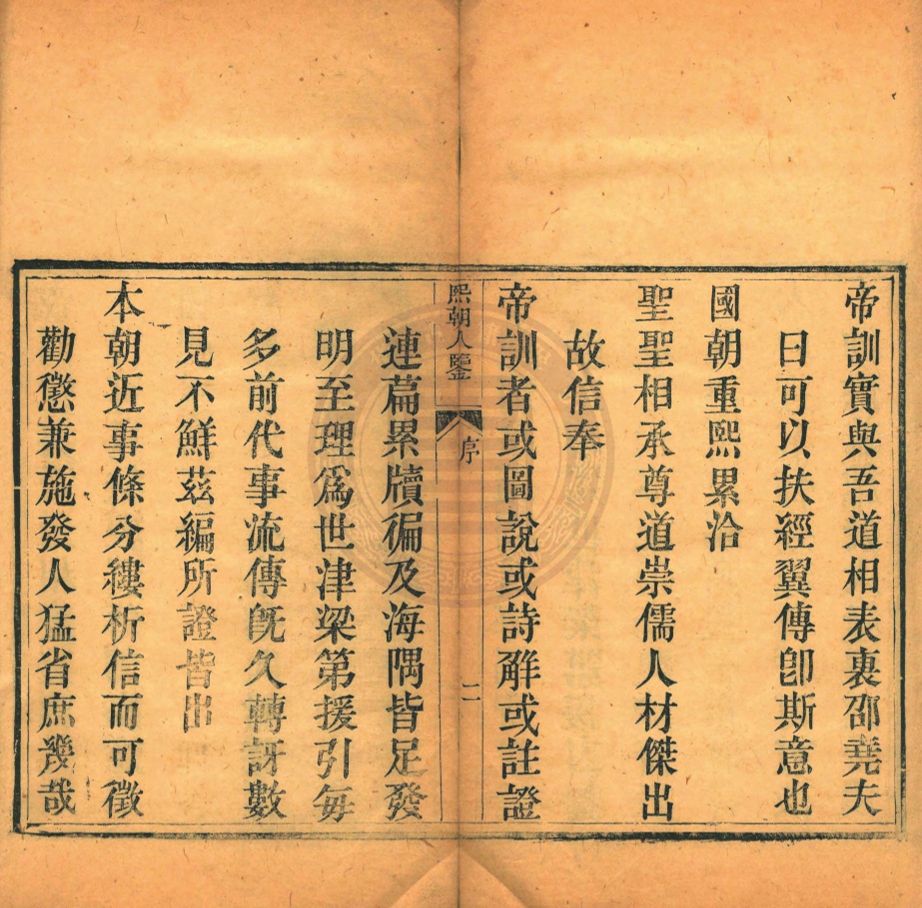 帝訓實與吾道相表裏邵堯夫
曰可以扶經翼傳卽斯意也
國朝重熙累洽
聖聖相承尊道崇儒人材傑出
故信奉
帝訓者或圖說或詩觧或註證
熙朝人鑒
序
二
連篇累牘徧及海隅皆足發
明至理爲世津梁第援引每
多前代事流傳旣久轉訝數
見不鮮茲編所證皆出
本朝近事條分縷析信而可徵
勸懲兼施發人猛省庶幾哉